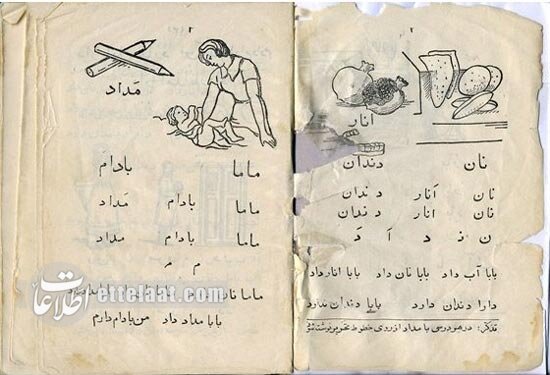 اَنار
نان دندان
نان اَنار دندان
نان انار دندان
ن د
بابا آب داد بابا نان داد بابا انار داد
دارا دندان دارد بابا دندان ندارد
تذکر: در هر درسی با مداد از روی خطوط
مَداد
ماما بادام
ماما بادام مَداد
ماما بادام مداد
م م
ماما نان
بابا مداد داد من بادام دارم
اطلاعات ettelaat.com